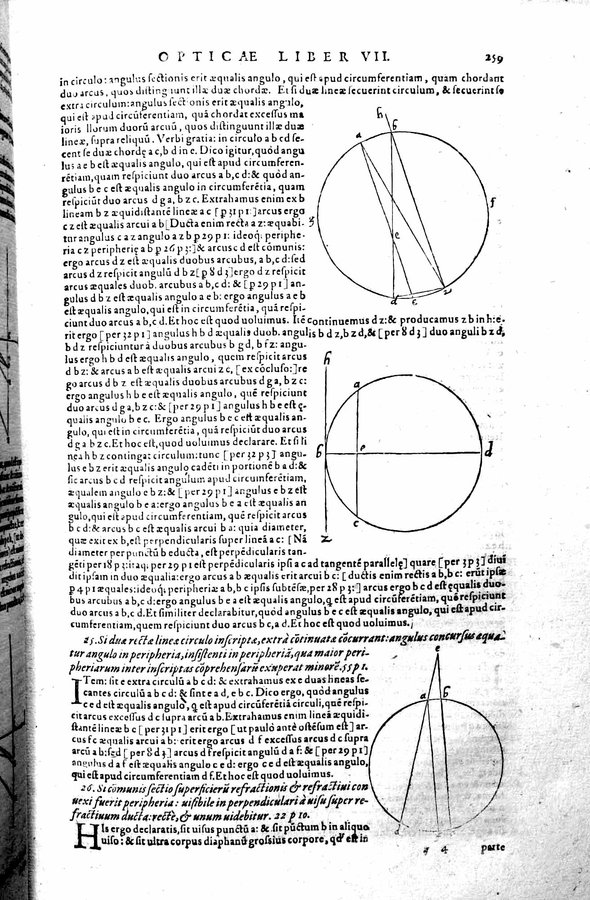 OPTICAE LIBER VII. 259
in circulo: angulus sectionis erit æqualis angulo, qui est apud circumferentiam, quam chordant
duo arcus, quos disting unt illæ duæ chordæ. Et si duæ lineæ secuerint circulum, & secuerint se
extra circulum: angulus sectionis erit æqualis angulo,
qui est apud circũferentiam, quã chordat excessus ma
ioris illorum duorũ arcuũ, quos distinguunt illæ duæ
lineæ, supra reliquũ. Verbi gratia: in circulo a b c d se-
cent se duæ chordę a c, b d in e. Dico igitur, quòd angu
lus a e b est æqualis angulo, qui est apud circumferen-
rẽtiam, quam respiciunt duo arcus a b, c d: & quòd an-
gulus b e c est æqualis angulo in circumferẽtia, quam
respiciũt duo arcus d g a, b z c. Extrahamus enim ex b
lineam b z æquidistantẽ lineæ a c [ p 31 p 1 :] arcus ergo
c z est æqualis arcui a b [Ducta enim recta a z: æquabi-
tur angulus c a z angulo a z b p 29 p 1: ideoq́; periphe-
ria c z peripheriæ a b p 26 p 3:] & arcus c d est cõmunis:
ergo arcus d z est æqualis duobus arcubus, a b, c d: sed
arcus d z respicit angulũ d b z [p 8 d 3] ergo d z respicit
arcus æquales duob. arcubus a b, c d: & [p 29 p 1] an-
gulus d b z est æqualis angulo a e b: ergo angulus a e b
est æqualis angulo, qui est in circumferẽtia, quã respi-
ciunt duo arcus a b, c d. Et hoc est quod uoluimus. Itẽ continuemus d z: & producamus z b in h: e-
rit ergo [per 32 p 1] angulus h b d æqualis duob. angulis b d z, b z d, & [per 8 d 3] duo anguli b z d,
b d z respiciuntur à duobus arcubus b g d, b f z: angu-
lus ergo h b d est æqualis angulo, quem respicit arcus
d b z: & arcus a b est æqualis arcui z c, [ex cõcluso:] er
go arcus d b z est æqualis duobus arcubus d g a, b z c:
ergo angulus h b e est æqualis angulo, quẽ respiciunt
duo arcus d g a, b z c: & [per 29 p 1] angulus h b e est ę-
qualis angulo b e c. Ergo angulus b e c est æqualis an-
gulo, qui est in circumferẽtia, quã respiciũt duo arcus
d g a b z c. Et hoc est, quod uoluimus declarare. Et si li
nea h b z contingat circulum: tunc [per 32 p 3] angu-
lus e b z erit æqualis angulo cadẽti in portionẽ b a d: &
sic arcus b c d respicit angulum apud circumferẽtiam,
æqualem angulo e b z: & [per 29 p 1] angulus e b z est
æqualis angulo b e a: ergo angulus b e a est æqualis an
gulo, qui est apud circumferentiam, quẽ respicit arcus
b c d: & arcus b c est æqualis arcui b a: quia diameter,
quæ exit ex b, est perpendicularis super lineã a c: [Nã
diameter per punctũ b educta, est perpẽdicularis tan-
gẽti per 18 p 3: itaq; per 29 p 1 est perpẽdicularis ipsi a c ad tangentẽ parallelę] quare [per 3 p 3] diui
dit ipsam in duo æqualia: ergo arcus a b æqualis erit arcui b c: [ductis enim rectis a b, b c: erũt ipsæ
p 4 p 1 æquales: ideoq́; peripheriæ a b, b c ipsis subtẽsæ, per 28 p 3:] arcus ergo b c d est ęqualis duo-
bus arcubus a b, c d: ergo angulus b e a est æqualis angulo, q est apud circumferẽtiam, quẽ respiciunt
duo arcus a b, c d. Et similiter declarabitur, quòd angulus b e c est æqualis angulo, qui est apud cir-
cumferentiam, quem respiciunt duo arcus b c, a d. Et hoc est quod uoluimus.
25. Si duæ rectæ lineæ circulo inscriptæ, extrà cõtinuatæ cõcurrant: angulus concursus æqua
tur angulo in peripheria, insistenti in peripheriã, qua maior peri-
pheriarum inter inscriptas cõprehensarũ exuperat minorẽ. 55 p 1.
ITem: sit e extra circulũ a b c d: & extrahamus ex e duas lineas se-
cantes circulũ a b c d: & sint e a d, e b c. Dico ergo, quòd angulus
c e d est æqualis angulo, q est apud circũferẽtiã circuli, quẽ respi-
cit arcus excessus d c supra arcũ a b. Extrahamus enim lineã æquidi-
stantẽ lineæ b c [per 31 p 1] erit ergo [ut paulò antè ostẽsum est] ar-
cus f c æqualis arcui a b: erit ergo arcus d f excessus arcus d c supra
arcũ a b: sed [per 8 d 3] arcus d f respicit angulũ d a f: & [per 29 p 1]
angulus d a f est æqualis angulo c e d: ergo c e d est æqualis angulo,
qui est apud circumferentiam d f. Et hoc est quod uoluimus.
26. Si communis sectio superficierũ refractionis & refractiui con
uexi fuerit peripheria: uisibile in perpendiculari à uisu super re-
fractiuum ducta: rectè, & unum uidebitur. 22 p 10.
HIs ergo declaratis, sit uisus punctũ a: & sit pũctum b in aliquo
uiso: & sit ultra corpus diaphanũ grossius corpore, qđ est in
parte
h
b
a
f
3
e
d
c
z
h
a
b
e
d
c
z
e
a
b
d
f
c